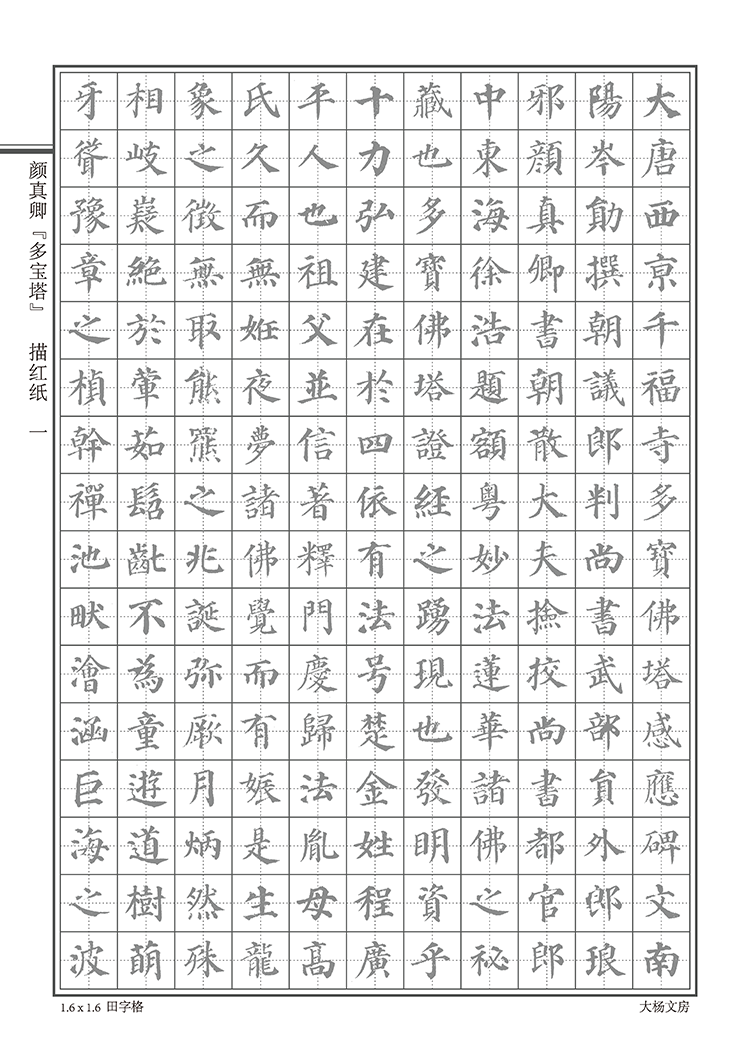 大唐西亰千福寺多寶佛塔感應碑文南
陽岑勛撰朝議郎判尚書武部貟外郎琅
邪顔真卿書朝散大夫撿挍尚書都官郎
中東海徐浩題額粵妙法蓮華諸佛之祕
藏也多寶佛塔證經之踴現也發明資乎
十力弘建在於四依有法号楚金姓程廣
平人也祖父並信著釋門慶歸法胤母高
氏久而無姙夜夢諸佛覺而有娠是生龍
象之徵無取熊羆之兆誕弥厥月炳然殊
相岐嶷絶於葷茹髫齔不為童遊道樹萌
牙聳豫章之楨幹禪池畎澮涵巨海之波
颜真卿『多宝塔』 描红纸 一
1.6 x 1.6 田字格
大杨文房